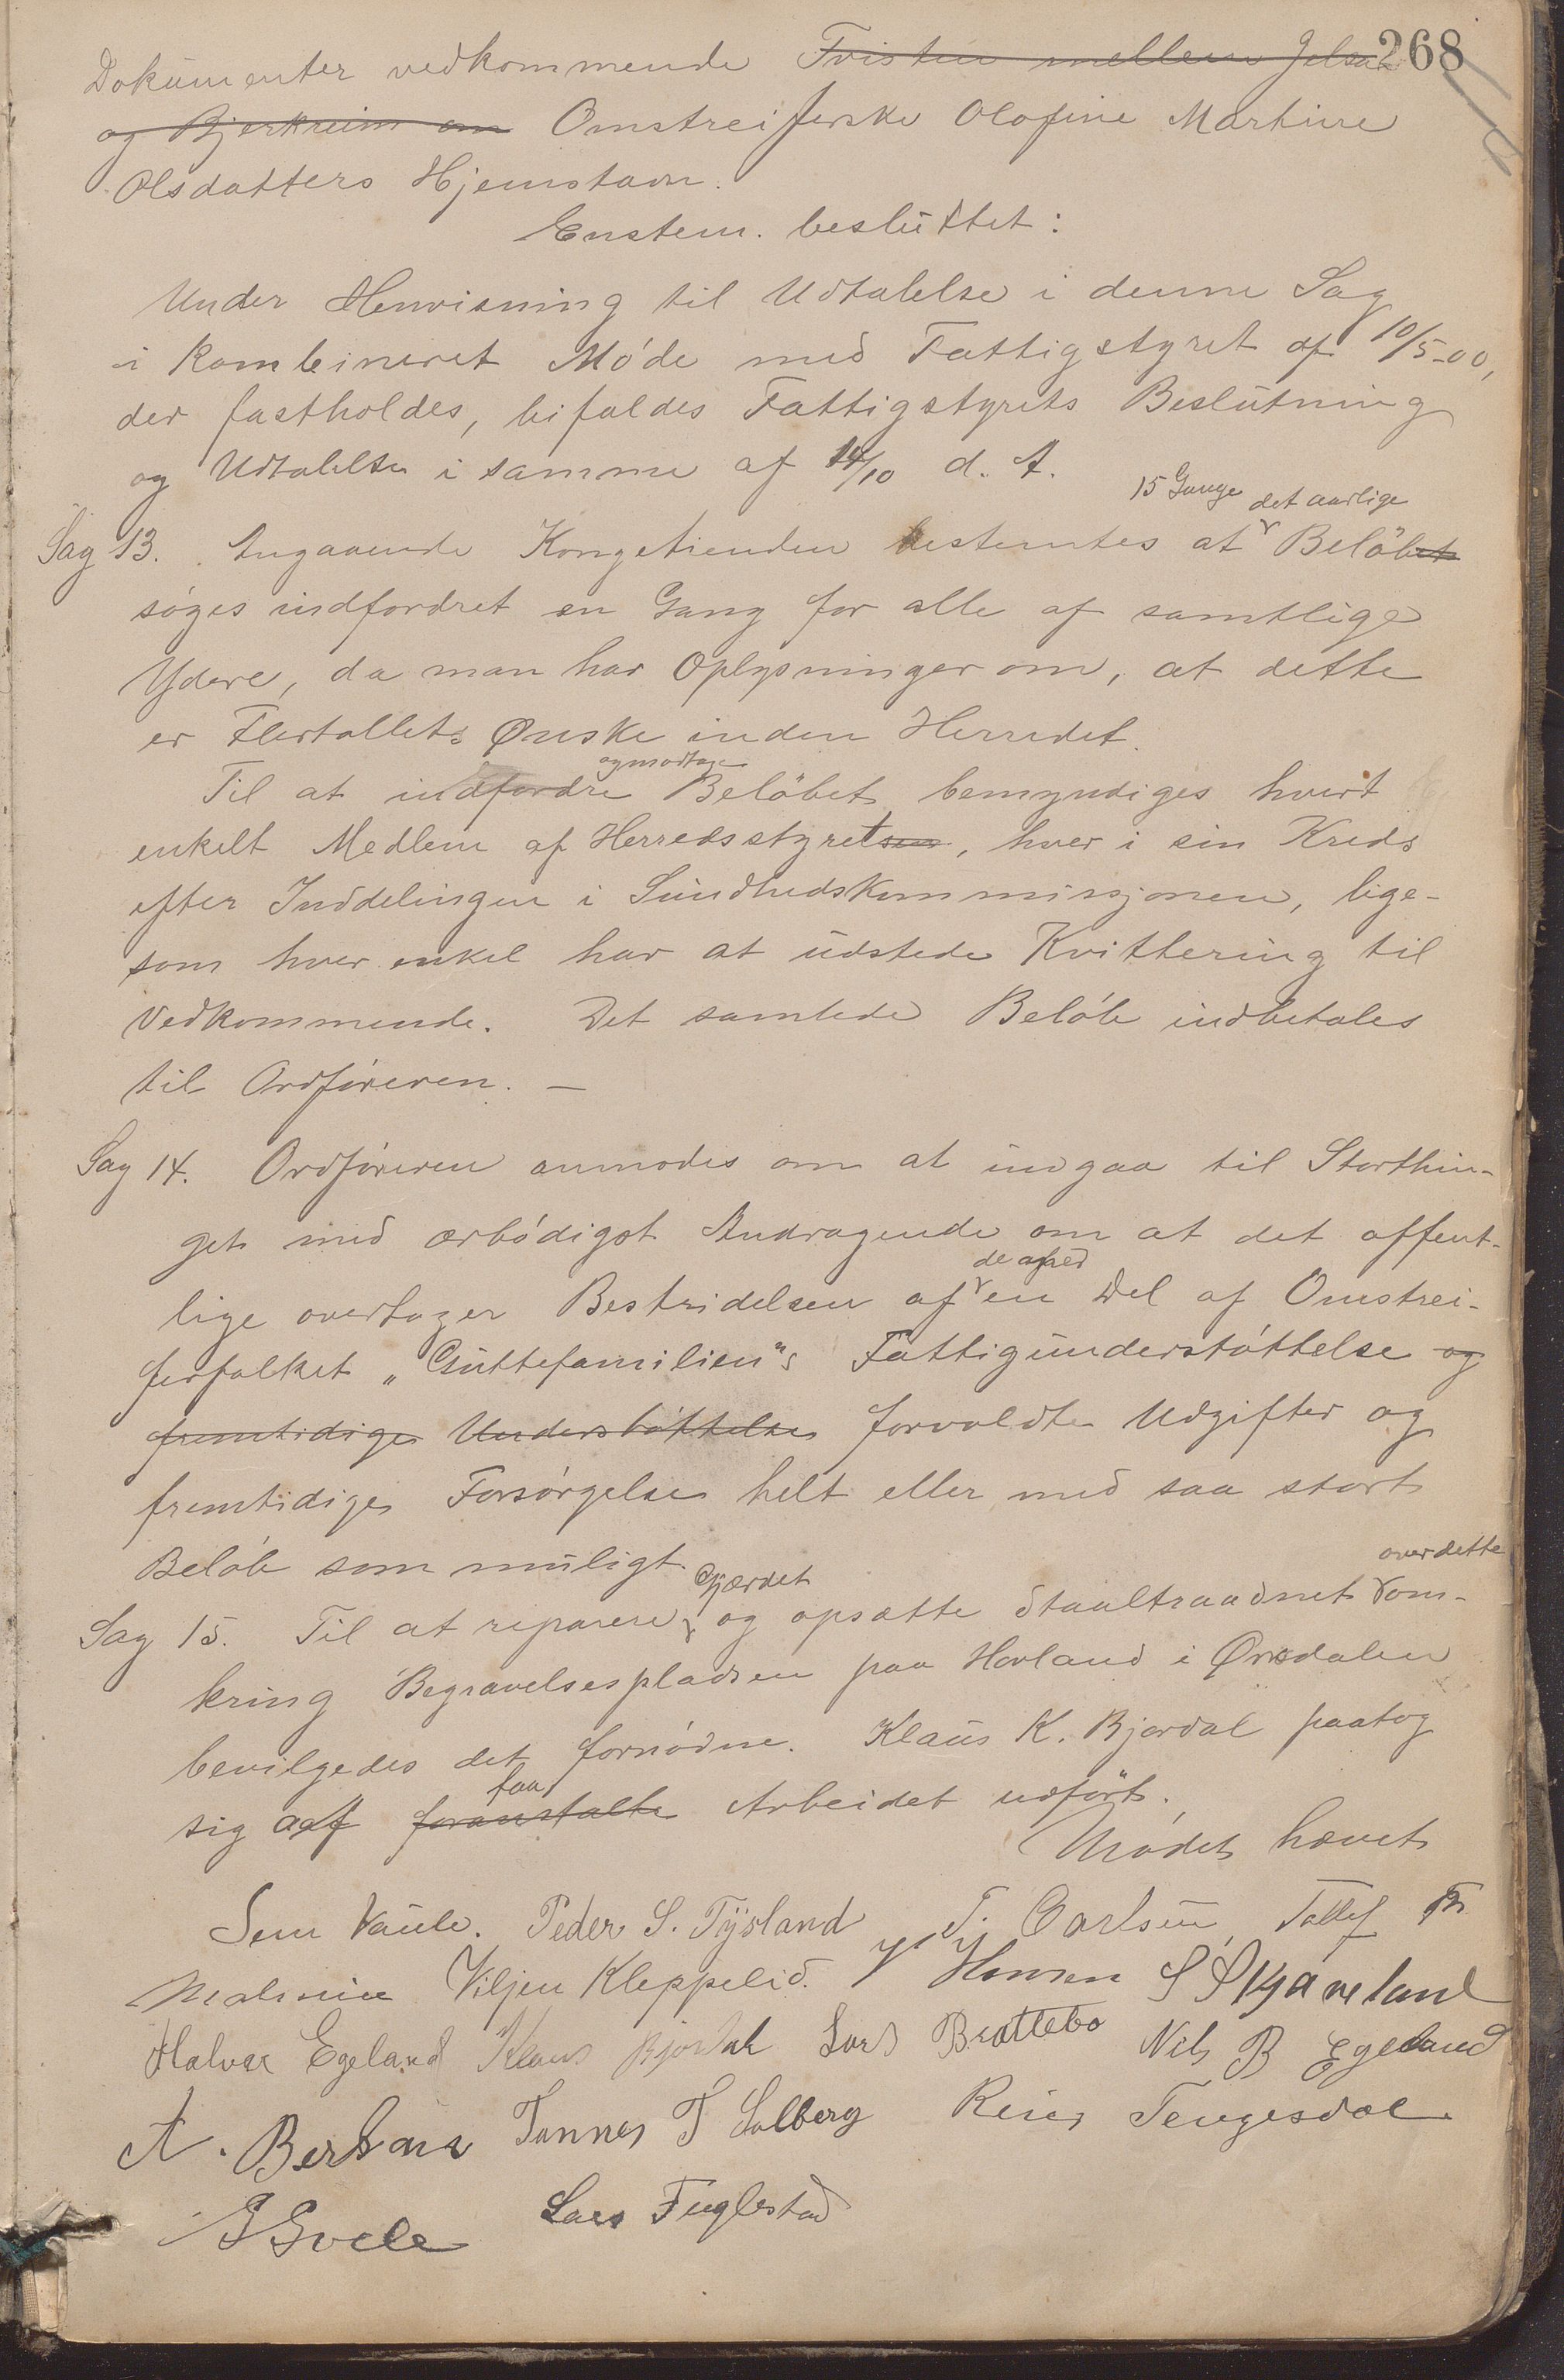 268
Dokumenter vedkommende Tvisten mellem Jelsa
og Bjerkreim om Omstreiferske Olofine Martine
Olsdatters Hjemstavn.
Enstem. besluttet:
Under Henvisning til Udtalelse i denne Sag
i kombineret Møde med Fattigstyret af 10/5-00,
der fastholdes, bifaldes Fattigstyrets Beslutning
og Udtalelse i samme af 14/10 d. A.
15 Gange det aarlige
Sag 13. Angaaende Kongetienden bestemtes at Beløbet
søges indfordret en Gang for alle af samtlige
Ydere, da man har Oplysninger om, at dette
er Flertallets Ønske inden Herredet.
og modtage
Til at indfordre Beløbet bemyndiges hvert
enkelt Medlem af Herredsstyretsen, hver i sin Kreds
efter Inddelingen i Sundhedskommissjonen, lige-
som hver enkel har at udstede Kvittering til
Vedkommende. Det samlede Beløb indbetales
til Ordføreren. —
Sag 14. Ordføreren anmodes om at indgaa til Storthin-
get med ærbødigst Andragende om at det offent-
de afsed
lige overtager Bestridelsen af en Del af Omstrei-
ferfolket „Guttefamilien"s Fattigunderstøttelse og
fremtidige Understøttelse forvoldte Udgifter og
fremtidige Forsørgelse helt eller med saa stort
Beløb som muligt.
Gjærdet over dette
Sag 15. Til at reparere og opsætte Staaltraadnet om-
kring Begravelsespladsen paa Hovland i Ørsdalen
bevilgedes det fornødne. Klaus K. Bjordal paatog
faa
sig at foranstalte Arbeidet udført.
Mødet hævet
Sem Vaule. Peder S. Tysland T. Carlsen Tollef Th.
Malmin Viljen Kleppelid. V Hansen S S Kjøneland
Halvor Egeland Klaus Bjordal Lars Brattebø Nils B Egeland
A. Bersaas Tønnes T Solberg Reier Tengesdal
Lars Fuglestad